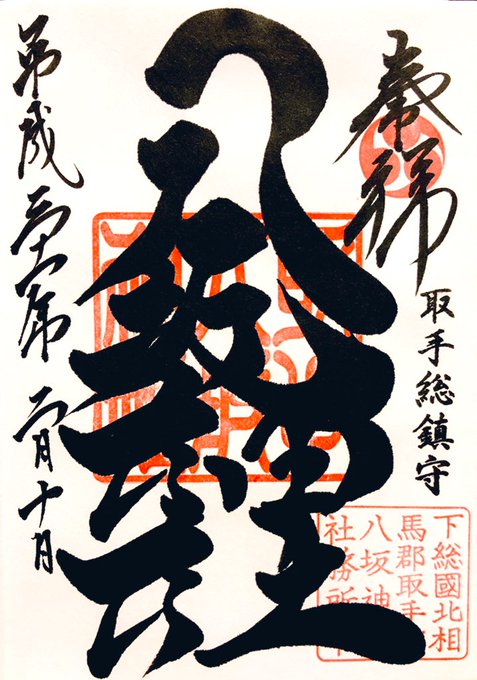 奉拝
取手総鎮守
八坂神社
平成三十一年二月十日
下総國北相
馬郡取手
八坂神
社務所